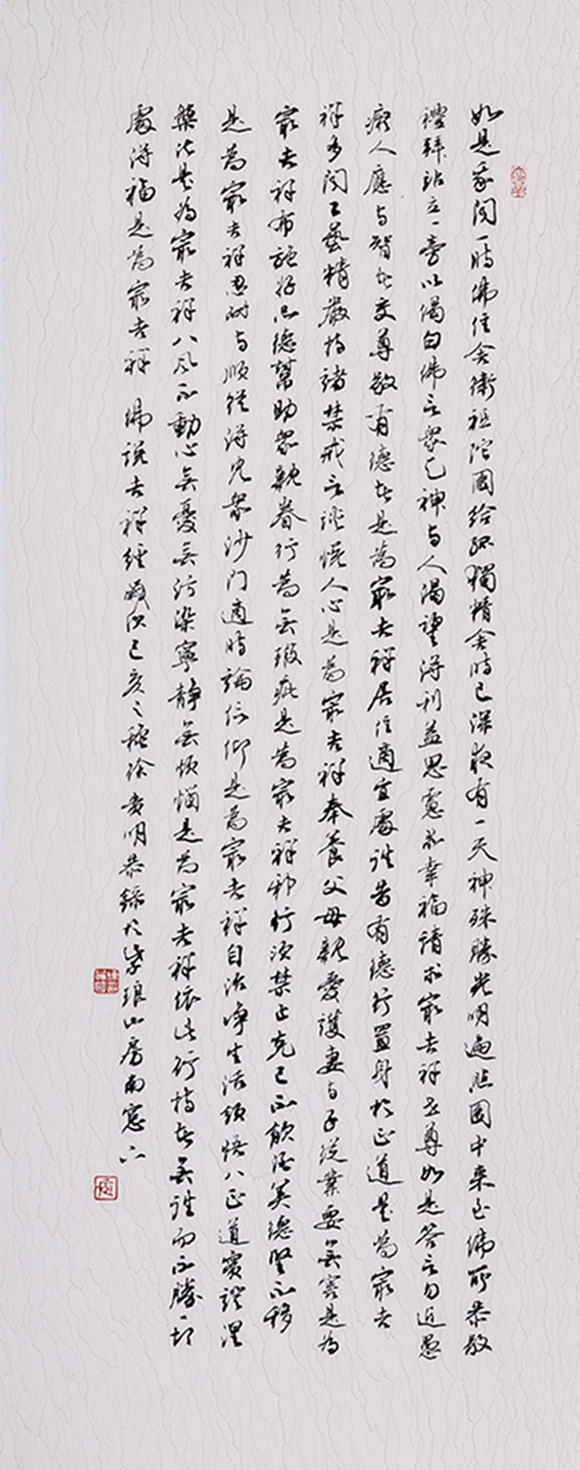 如是我闻一时佛住舍卫祇陀园给孤独精舍时已深夜有一天神殊胜光明遍照园中来至佛所恭敬
礼拜站立一旁以偈白佛言众已神与人渴望得利益思虑求幸福请示最吉祥世尊如是答言勿近愚
痴人应与智者交尊敬有德者是为最吉祥居住适宜处往昔有德行置身于正道是为最吉
祥多闻工艺精严持诸禁戒言谈悦人心是为最吉祥奉养父母亲爱护妻与子从业要无害是为
最吉祥布施好品德帮助众亲眷行为无瑕疵是为最吉祥邪行须禁止克己不饮酒美德坚不移
是为最吉祥忍耐与顺从得见众沙门适时论信仰是为最吉祥自治净生活领悟八正道实证涅
槃法是为最吉祥八风不动心无忧无污染宁静无烦恼是为最吉祥依此行持者无往而不胜一切
处得福是为最吉祥 佛说吉祥经 岁次己亥之 贵明恭录于紫琅山房南窗下